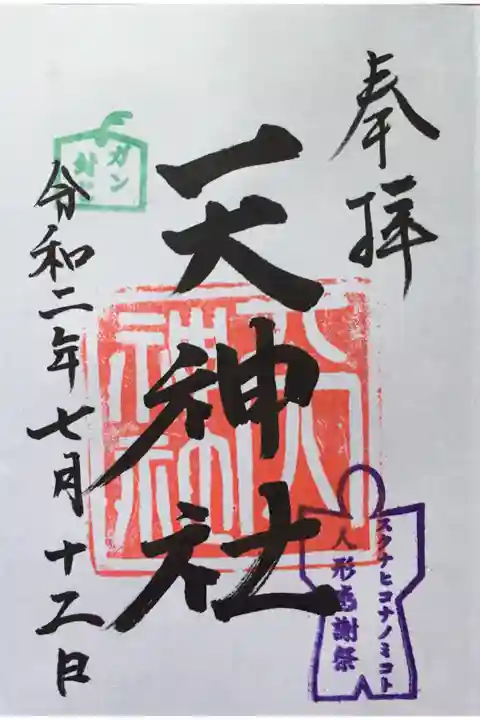 奉拝
天神社
令和二年七月十二日
ガン
封じ
スクナヒコナノミコト
人形感謝祭